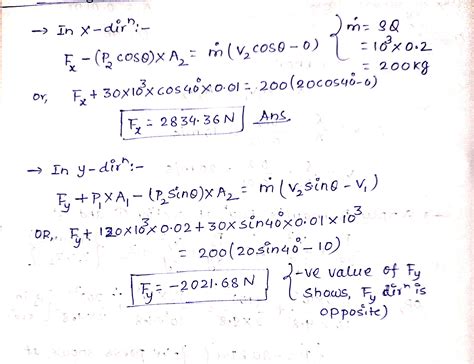 → In x-dirⁿ:-
Fx - (P₂ cosθ) x A₂ = ṁ (V₂ cosθ - 0)
ṁ = ϱQ
= 10³ x 0.2
= 200kg
or, Fx + 30x10³x cos40° x 0.01 = 200(20cos40° - 0)
Fx = 2834.36 N Ans.
→ In y-dirⁿ:-
Fy + P₁ x A₁ - (P₂ sinθ) x A₂ = ṁ (V₂ sinθ - V₁)
OR, Fy + 120x10³ x 0.02 + 30x sin40° x 0.01 x 10³
= 200(20sin40° - 10)
∴ Fy = -2021.68 N
{-ve value of Fy
shows, Fy dirⁿ is
opposite)